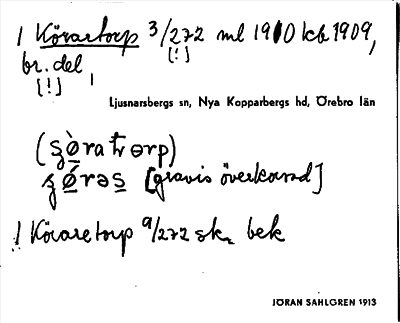 ! Körartorp 3/272 ml 1910 kb 1909,
[!]
br. del,
[!]
Ljusnarsbergs sn, Nya Kopparbergs hd, Örebro län
[gravis överkorsad]
! Köraretorp a/272 sk. bek
JÖRAN SAHLGREN 1913